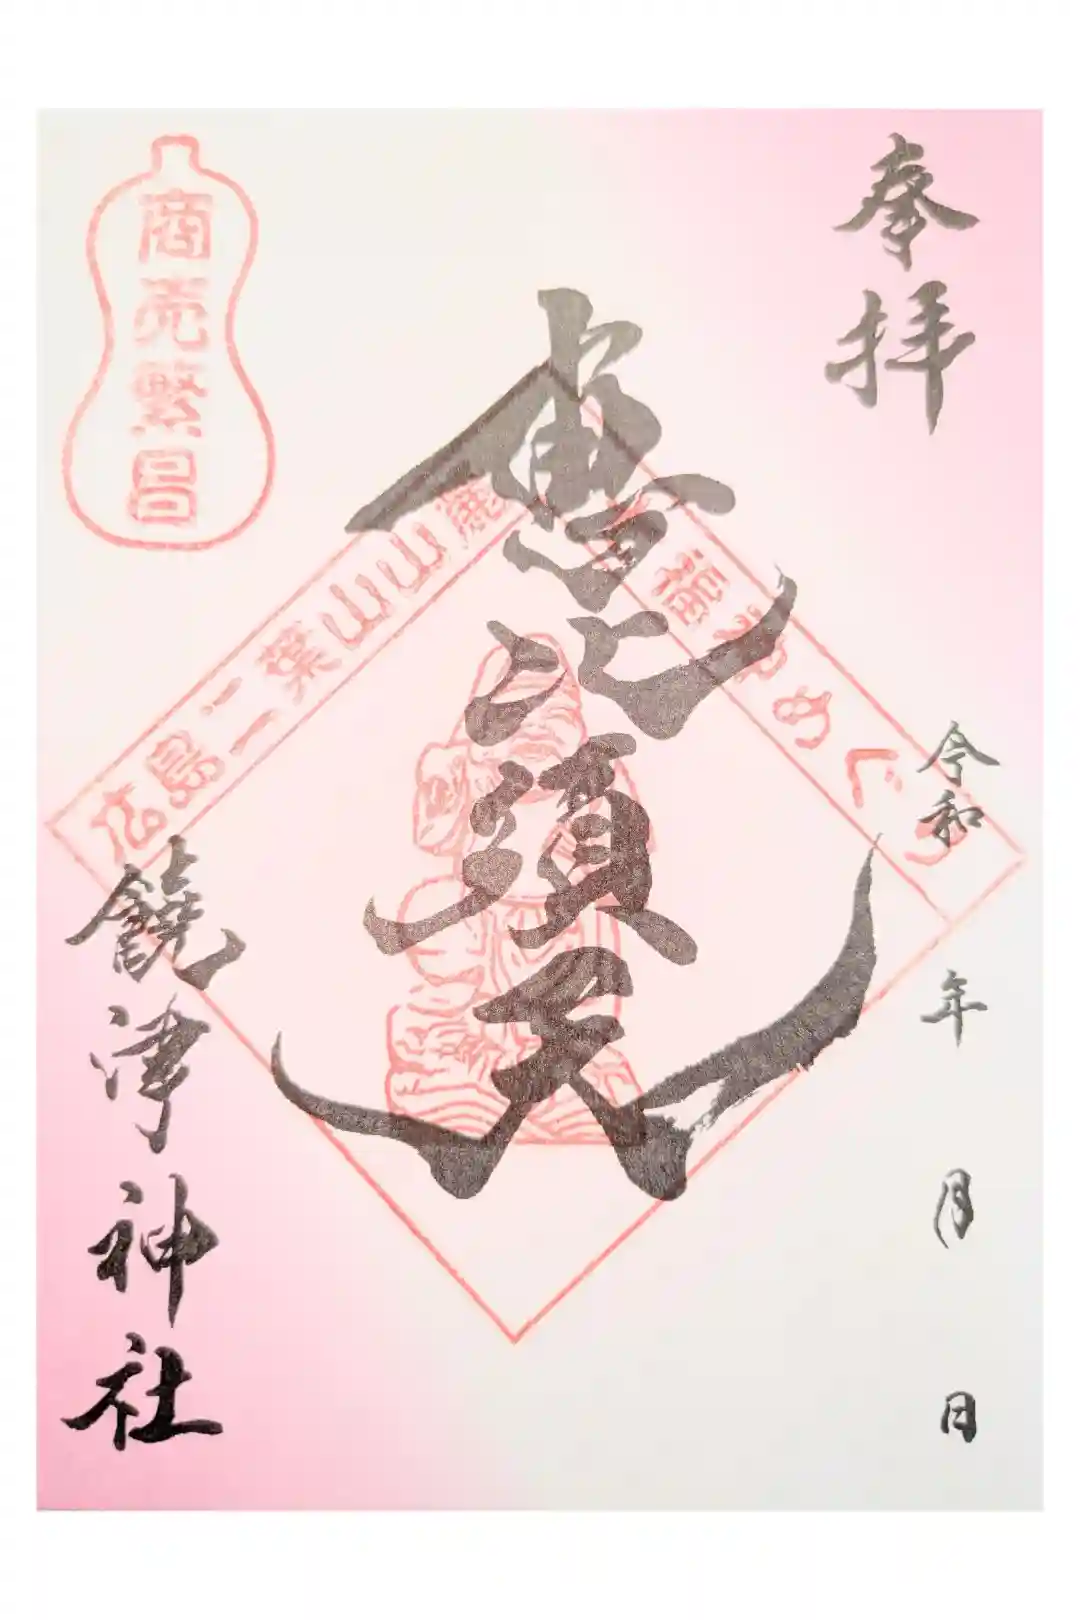 奉拝
令和 年 月 日
恵比須天
広島二葉山山麓
七福神めぐり
商売繁昌
饒津神社